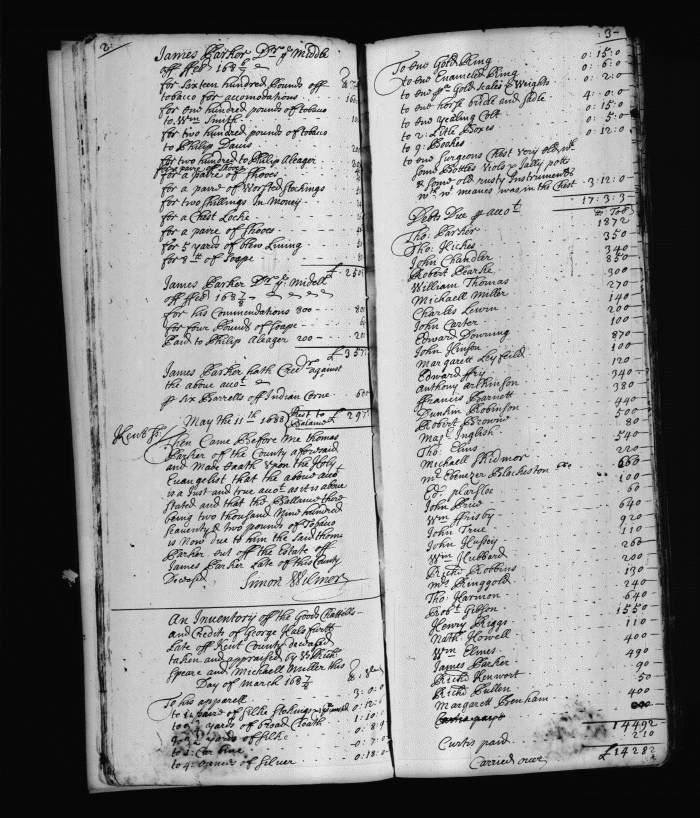 2:
James Parker Dr. ye Middle
off ffeb 168 7/8
for Sixteen hundred Pounds off
tobacco for accomodations
for one hundred pounds of tobaco
to Wm Smith
for two hundred pounds of tobaco
to Philip Davis
for two hundred to Philip Aleager
for a paire of Shooes
for a paire of Worsted Stockings
for two Shillings In money
for a Chest Locke
for a paire of Shooes
for 5 yards of blew Lining
for 8 lt of Soape
James Parker Dr. ye Midell
off ffeb 168 7/8
for his Commendations 800
for four Pounds of soape
Paid to Philip Aleager 200
James Parker hath Credr against
the above acct
p six Barrells off Indian Corne
May the 11th 1688
Rest to
Balance
Kent ss.
Then Came Before me thomas
Parker of the County aforesaid
and Made Oath Upon the Holy
Evangelist that the above acct
is a Just and true acct as it is above
Stated and that the Ballance there
being two thousand Nine hundred
Seaventy & two pounds of Tobaco
is Now due to him the said thom:
Parker out off the Estate of
James Parker Late of this County
Deceased
Simon Wilmer
An Inventory off the Goods Chattells
and Credits of George Hals
Late off Kent County deceased
taken and appraised by
Speare and Michaell Miller this
Day of march 168 7/8
To his apparell 3:0:0
yards of broad Cloath
yards of Silke
to 4: ounces of Silver 0:18:0
:3-
To one Gold Ring 0:15:0
to one Enameled Ring 0:6:0
to one pr Gold scales & Weights 0:2:0
to one horse bridle and sadle 4:0:0
to one yealing Colt 0:15:0
to 2: Litle Boxes 0:5:0
to 9: Bookes 0:12:0
to one Surgeons Chest very old
some Bottles Viols & Gally potts
& some old rusty Instruments
wt. wt. meanes was in the Chest 3:12:0
17:3:3
Debts Due p acct
Tob
Tho: Parker 1872
Tho: Riches 350
John Chandler 340
Robert Pearke 850
William Thomas 300
Michaell Miller 270
Charles Lewin 140
John Carter 200
Edward Downing 100
John Hinson 870
Margarett Loyfeild 100
Edward ffry 120
Anthony Arkinson 340
ffrancis Barnett 380
Dunkin Robinson 440
Robert Browne 500
Mag Inglish 80
Tho: Elms 540
Michaell Skidmor 220
Mr Ebenezer Blackeston 660
100
John Price 60
Wm ffrisby 640
John True 920
John Hussey 110
Wm Hubbard 260
Richd Robbins 200
Mrs Ringgold 130
Tho: Harmon 240
Robt Gibson 640
Henry Riggs 1550
Nath Howell 110
Wm Elmes 400
James Parker 490
Richd Kenwort 90
Richd Pullen 50
Margarett Benham 400
14492
Curtis paid 210
Carried over £14282